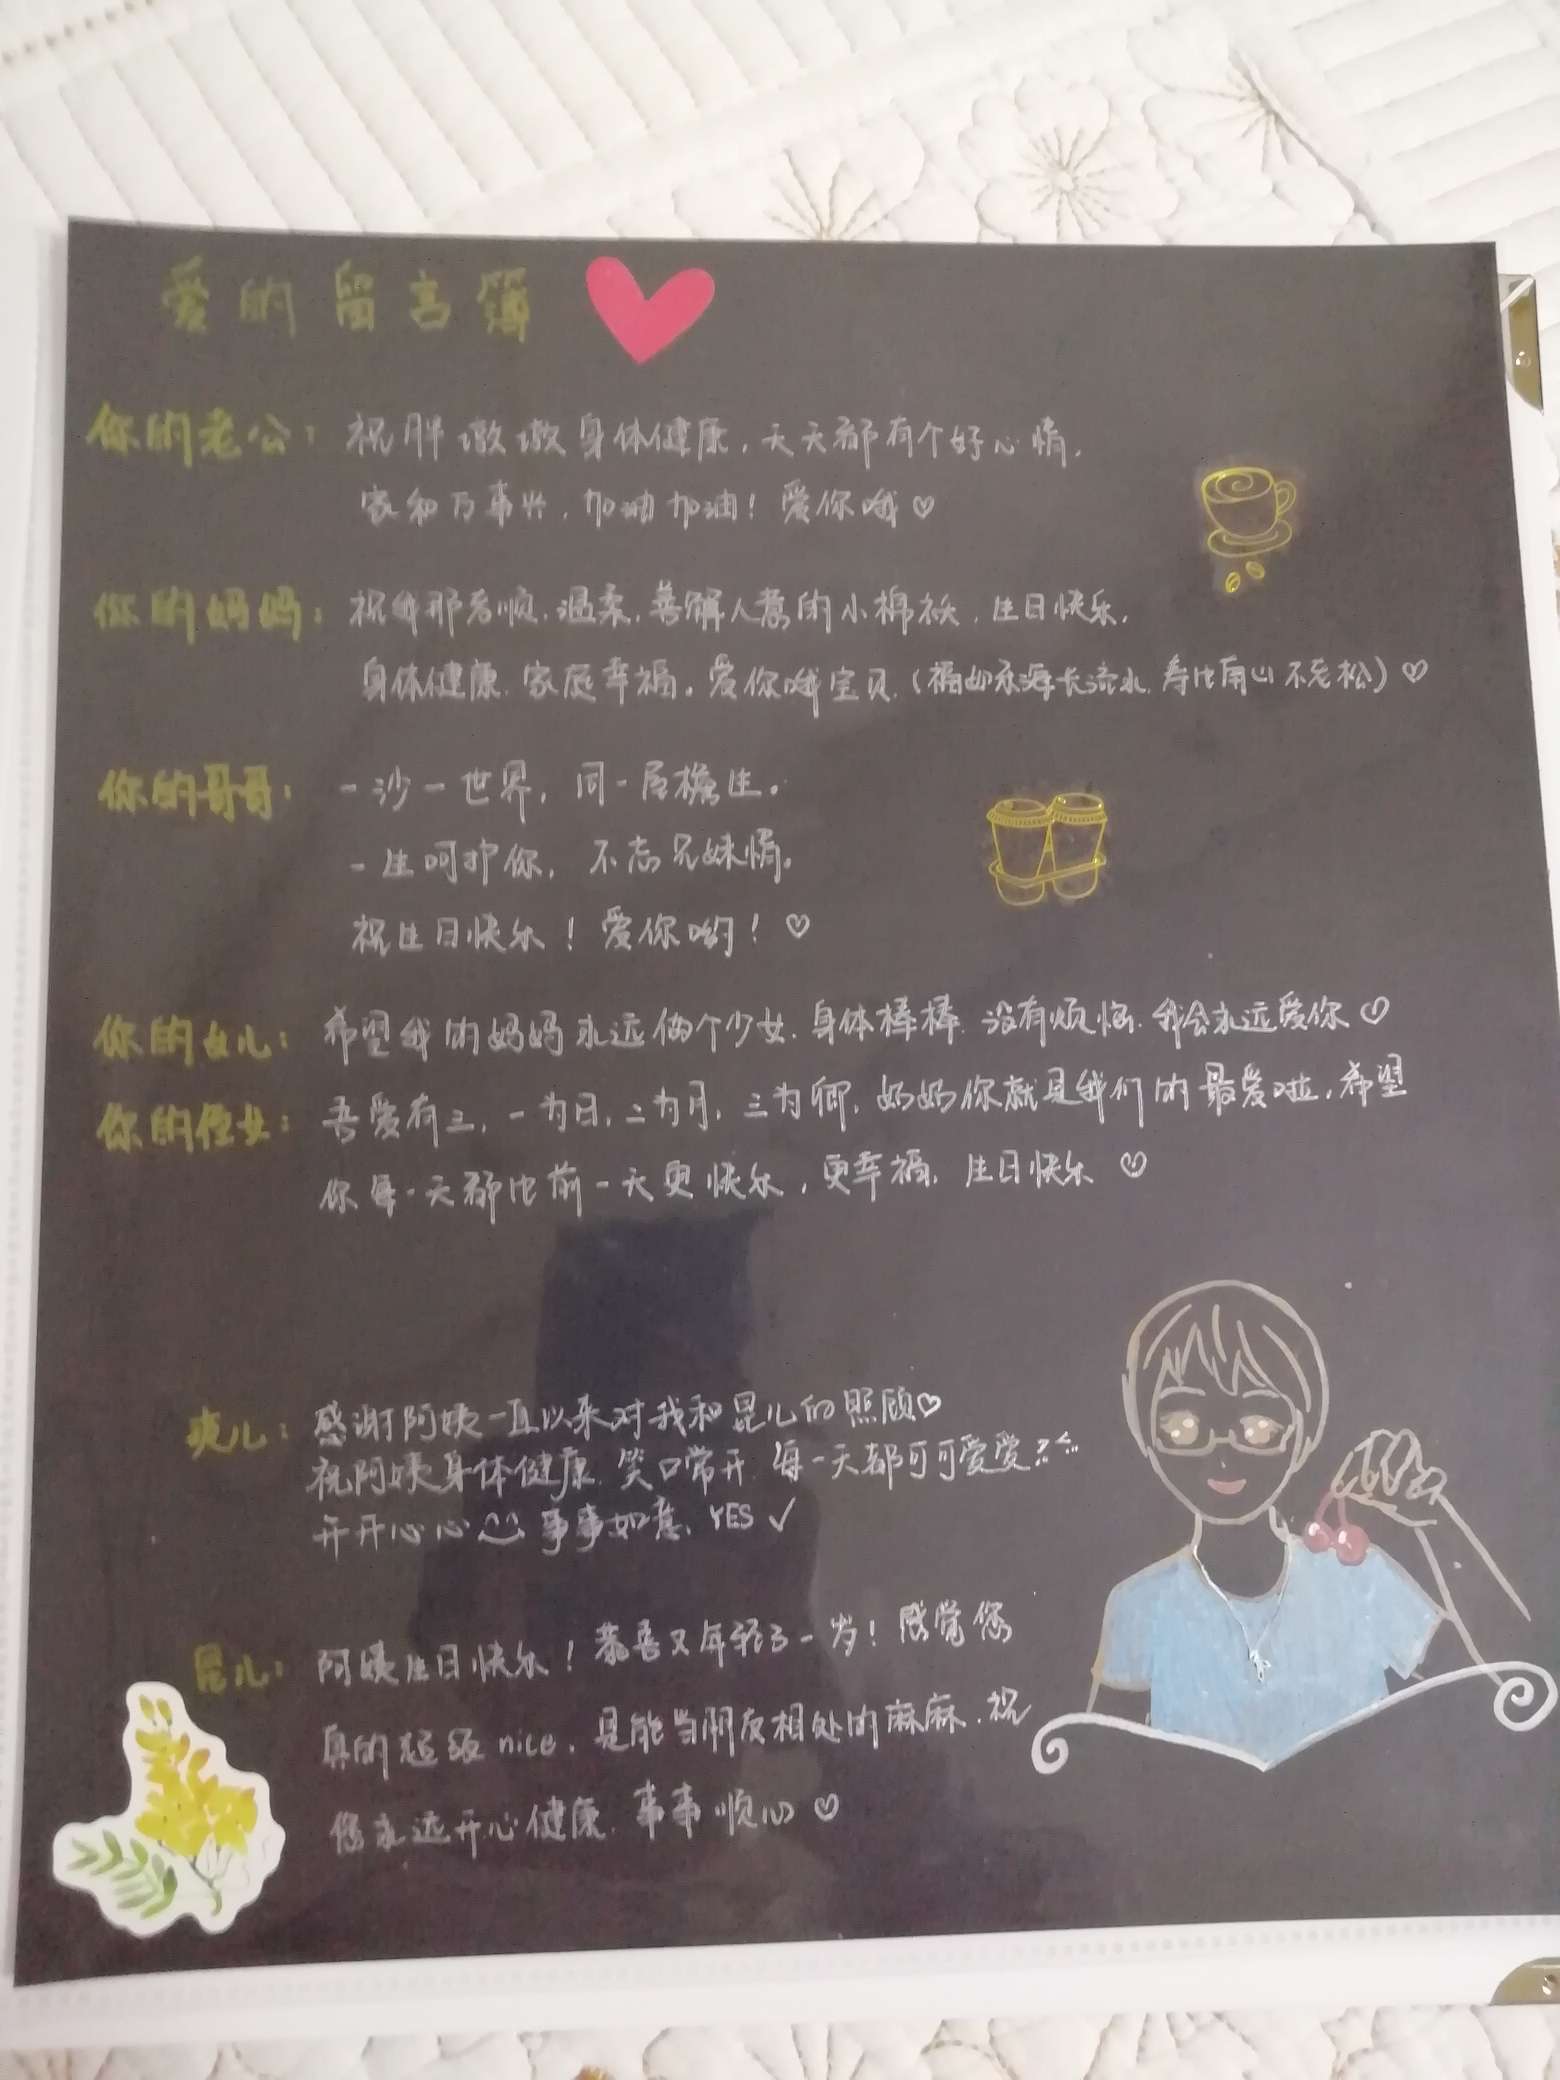 爱的留言簿
你的老公：祝胖墩墩身体健康，天天都有个好心情，
家和万事兴，加油加油！爱你哦♡
你的妈妈：祝我那孝顺.温柔.善解人意的小棉袄，生日快乐，
身体健康.家庭幸福。爱你哦宝贝.(福如东海长流水.寿比南山不老松)♡
你的哥哥：一沙一世界，同一屋檐生。
一生呵护你，不忘兄妹情。
祝生日快乐！爱你哟！♡
你的女儿：希望我的妈妈永远做个少女.身体棒棒.没有烦恼.我会永远爱你♡
你的侄女：吾爱有三，一为日，二为月，三为卿，妈妈你就是我们的最爱啦，希望
你每一天都比前一天更快乐，更幸福，生日快乐♡
爽儿：感谢阿姨一直以来对我和昆儿的照顾♡
祝阿姨身体健康.笑口常开.每一天都可可爱爱
开开心心 事事如意，YES✓
昆儿：阿姨生日快乐！恭喜又年轻了一岁！感觉您
真的超级nice，是能当朋友相处的麻麻，祝
您永远开心健康.事事顺心♡